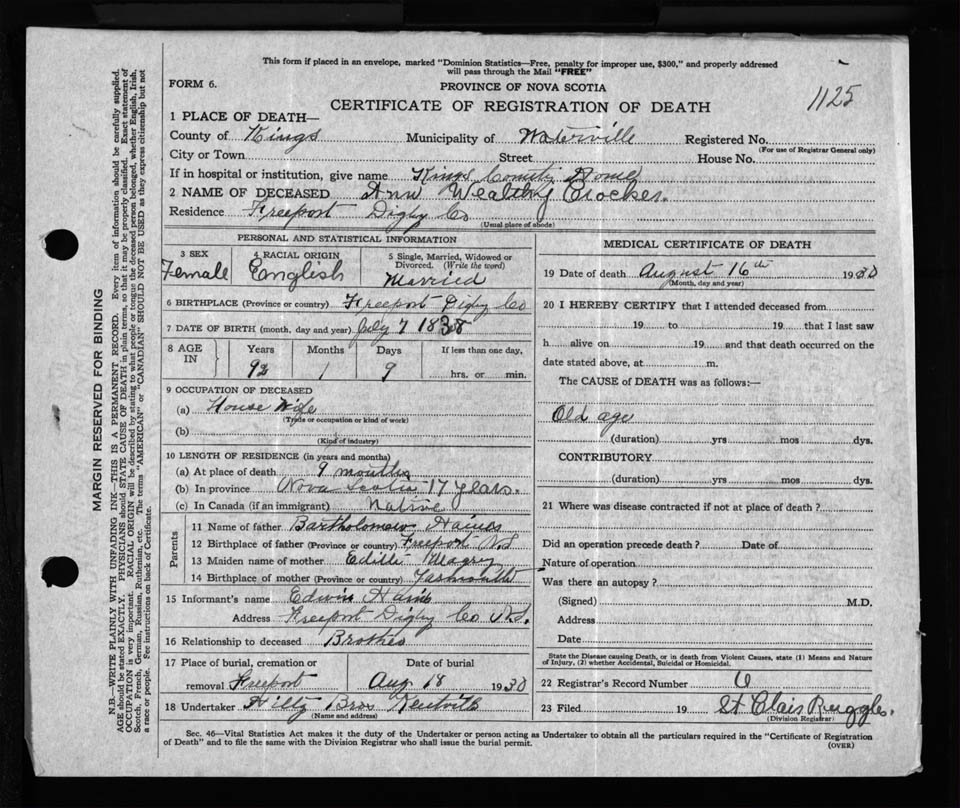 This form if placed in an envelope, marked "Dominion Statistics—Free, penalty for improper use, $300," and properly addressed
will pass through the Mail "FREE"
FORM 6.
PROVINCE OF NOVA SCOTIA
1125
CERTIFICATE OF REGISTRATION OF DEATH
1 PLACE OF DEATH—
County of Kings Municipality of Waterville Registered No.
(For use of Registrar General only)
City or Town Street House No.
If in hospital or institution, give name Kings County Home
2 NAME OF DECEASED Ann Wealthy Crocker.
Residence Freeport Digby Co
(Usual place of abode)
PERSONAL AND STATISTICAL INFORMATION
3 SEX Female
4 RACIAL ORIGIN English
5 Single, Married, Widowed or Divorced. (Write the word) Married
6 BIRTHPLACE (Province or country) Freeport Digby Co
7 DATE OF BIRTH (month, day and year) July 7 1838
8 AGE IN Years Months Days If less than one day,
92 1 9 hrs. or min.
9 OCCUPATION OF DECEASED
(a) House Wife
(Trade or occupation or kind of work)
(b)
(Kind of industry)
10 LENGTH OF RESIDENCE (in years and months)
(a) At place of death 9 months
(b) In province Nova Scotia 17 years.
(c) In Canada (if an immigrant) Native
Parents
11 Name of father Bartholomew Haines
12 Birthplace of father (Province or country) Freeport N.S
13 Maiden name of mother Edith
14 Birthplace of mother (Province or country) Yarmouth
15 Informant's name Edwin Haines
Address Freeport Digby Co N.S.
16 Relationship to deceased Brother
17 Place of burial, cremation or removal Freeport
Date of burial Aug 18 1930
18 Undertaker Hiltz Bros Kentville
(Name and address)
MEDICAL CERTIFICATE OF DEATH
19 Date of death August 16th 1930
(Month, day and year)
20 I HEREBY CERTIFY that I attended deceased from
19 to 19 that I last saw
h alive on 19 and that death occurred on the
date stated above, at m.
The CAUSE of DEATH was as follows:—
Old age
(duration) yrs mos dys.
CONTRIBUTORY
(duration) yrs mos dys.
21 Where was disease contracted if not at place of death?
Did an operation precede death? Date of
Nature of operation
Was there an autopsy?
(Signed) M.D.
Address
Date
State the Disease causing Death, or in death from Violent Causes, state (1) Means and Nature
of Injury, (2) whether Accidental, Suicidal or Homicidal.
22 Registrar's Record Number 6
23 Filed 19 St. Clair Ruggles.
(Division Registrar)
Sec. 46—Vital Statistics Act makes it the duty of the Undertaker or person acting as Undertaker to obtain all the particulars required in the "Certificate of Registration
of Death" and to file the same with the Division Registrar who shall issue the burial permit.
(OVER)
MARGIN RESERVED FOR BINDING
N.B.—WRITE PLAINLY WITH UNFADING INK—THIS IS A PERMANENT RECORD. Every item of information should be carefully supplied.
AGE should be stated EXACTLY. PHYSICIANS should STATE CAUSE OF DEATH in plain terms, so that it may be properly classified. Exact statement of
OCCUPATION is very important. RACIAL ORIGIN will be described by stating to what people or tongue the deceased person belonged, whether English, Irish,
Scotch, French, German, Russian, Ruthenian, etc. The terms "AMERICAN" or "CANADIAN" SHOULD NOT BE USED as they express citizenship but not
a race or people. See instructions on back of Certificate.